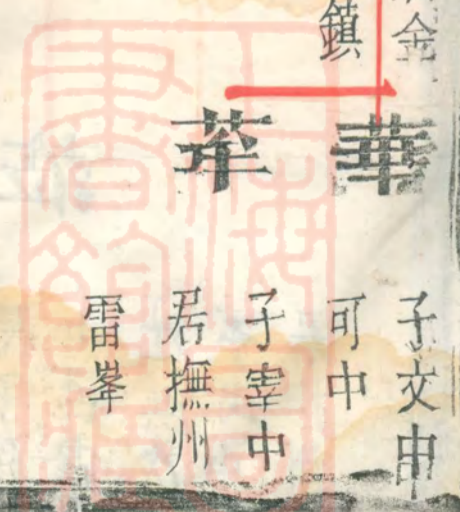 金
華
子文中
鎮
可中
萃
子宰中
居撫州
雷峯